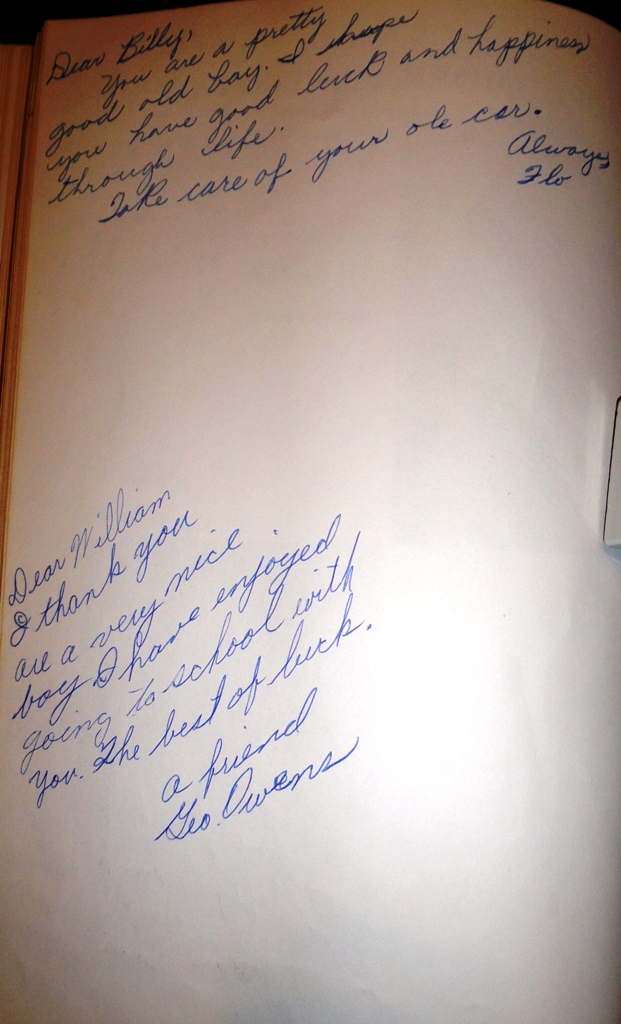 Dear Billy,
You are a pretty
good old boy. I hope
you have good luck and happiness
through life.
Take care of your ole car.
Always
Flo
Dear William
I thank you
are a very nice
boy I have enjoyed
going to school with
you. The best of luck.
a friend
Geo. Owens